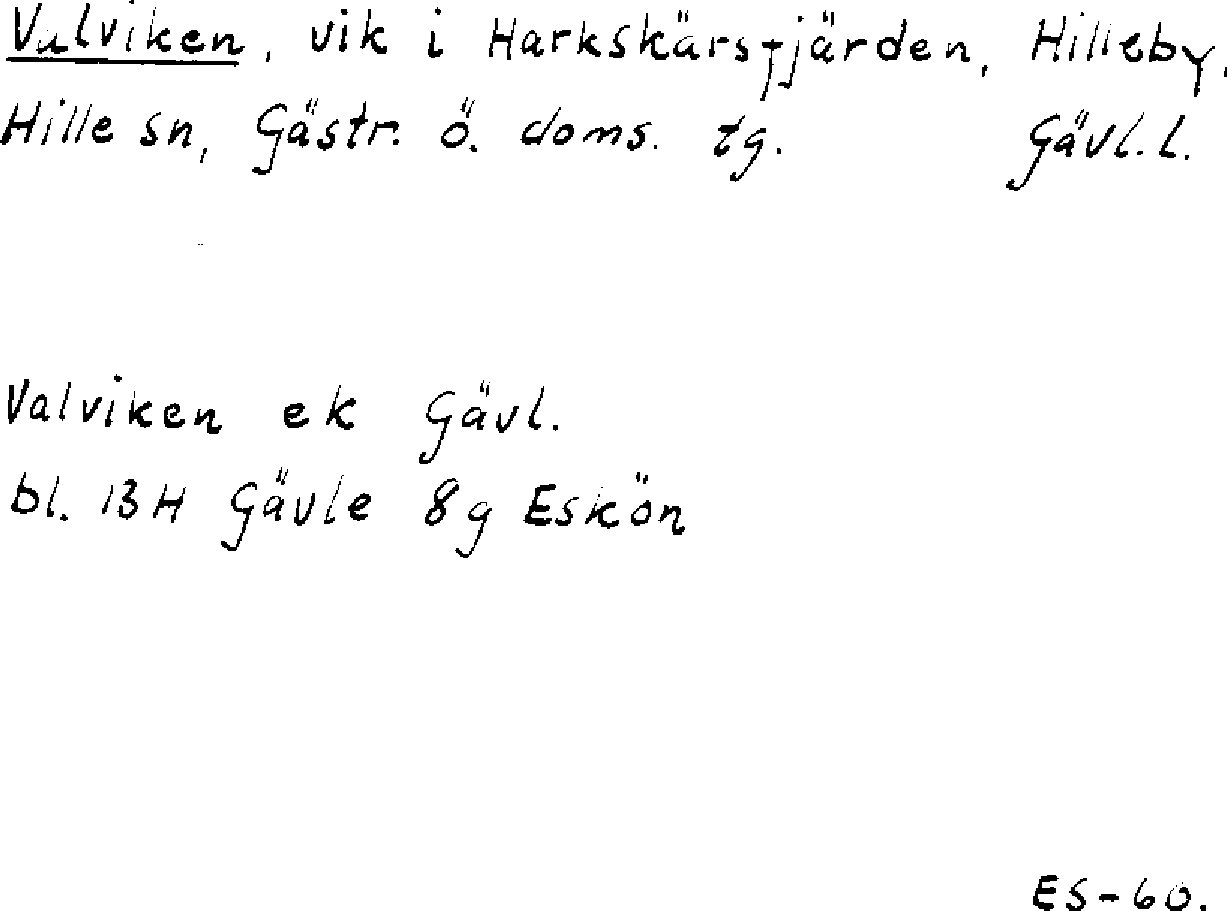 Valviken, vik i Harkskärsfjärden, Hilleby,
Hille sn, Gästr. ö. doms. tg. Gävl. l.
Valviken ek Gävl.
bl. 13H Gävle 8g Eskön
ES-60.